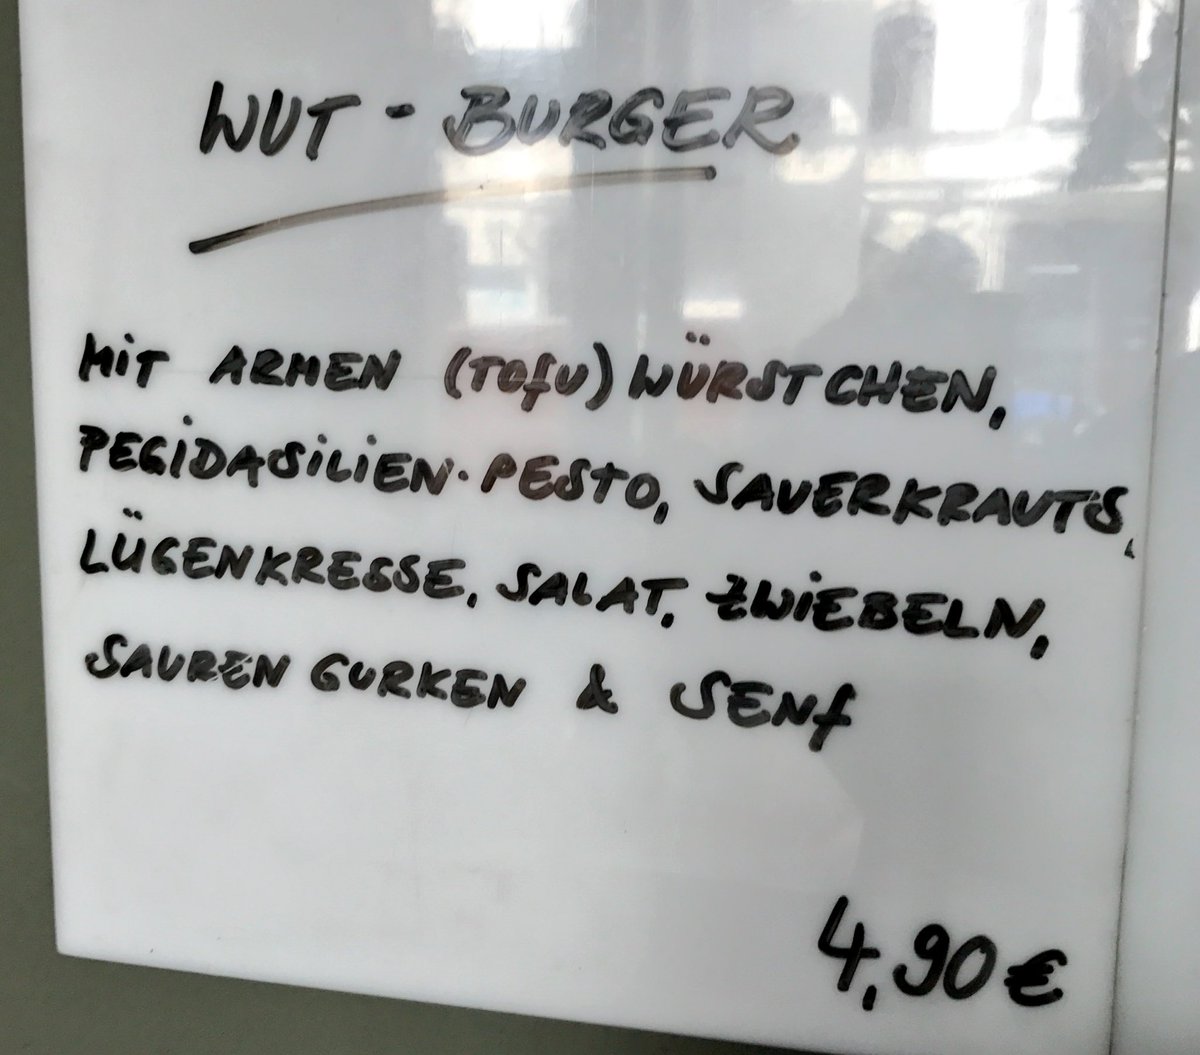 WUT - BURGER
MIT ARMEN (TOFU) WÜRSTCHEN,
PEGIDASILIEN-PESTO, SAUERKRAUTS,
LÜGENKRESSE, SALAT, ZWIEBELN,
SAUREN GURKEN & SENF
4,90 €